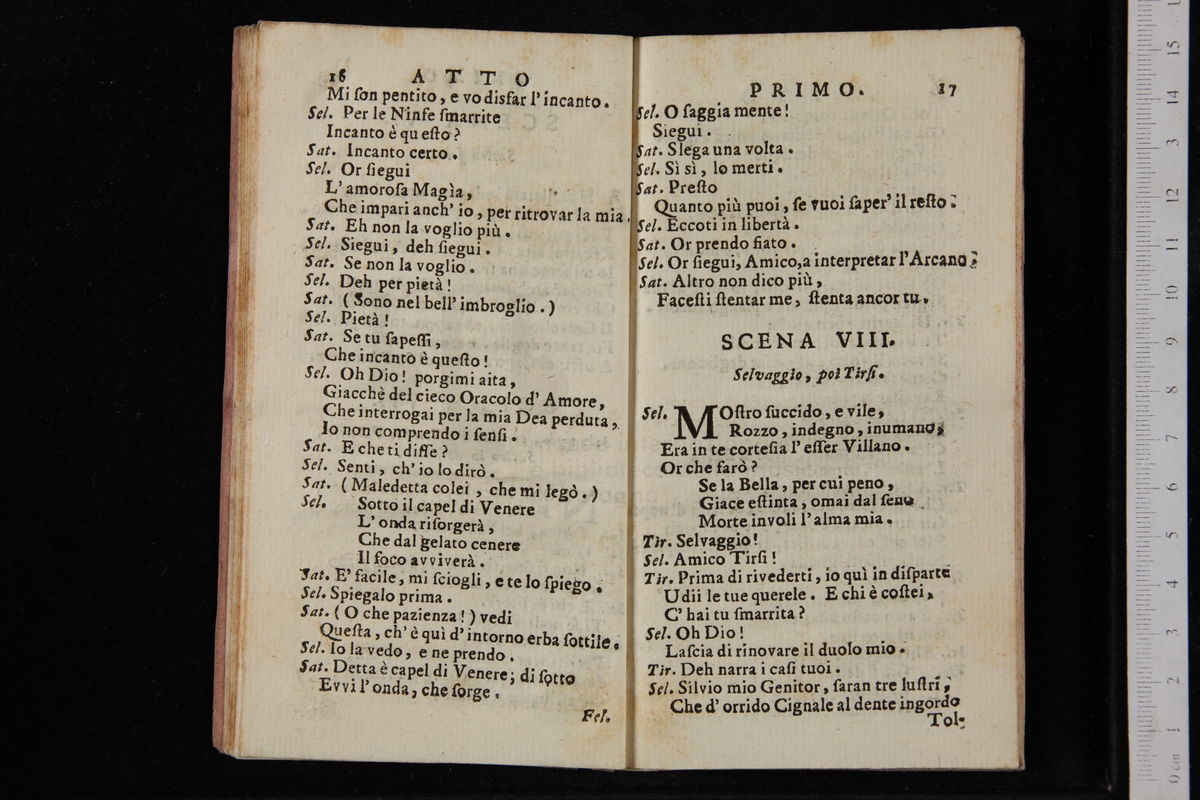 16 ATTO
Mi ſon pentito, e vo disfar l'incanto.
Sel. Per le Ninfe ſmarrite
Incanto è queſto?
Sat. Incanto certo.
Sel. Or ſiegui
L'amoroſa Magìa,
Che impari anch'io, per ritrovar la mia.
Sat. Eh non la voglio più.
Sel. Siegui, deh ſiegui.
Sat. Se non la voglio.
Sel. Deh per pietà!
Sat. (Sono nel bell'imbroglio.)
Sel. Pietà!
Sat. Se tu ſapeſſi,
Che incanto è queſto!
Sel. Oh Dio! porgimi aita,
Giacchè del cieco Oracolo d'Amore,
Che interrogai per la mia Dea perduta,
Io non comprendo i ſenſi.
Sat. E che ti diſſe?
Sel. Senti, ch'io lo dirò.
Sat. (Maledetta colei, che mi legò.)
Sel. Sotto il capel di Venere
L'onda riſorgerà,
Che dal gelato cenere
Il foco avviverà.
Sat. E' facile, mi ſciogli, e te lo ſpiego.
Sel. Spiegalo prima.
Sat. (O che pazienza!) vedi
Queſta, ch'è quì d'intorno erba ſottile.
Sel. Io la vedo, e ne prendo.
Sat. Detta è capel di Venere; di ſotto
Evvi l'onda, che ſorge.
Fel.
PRIMO. 17
Sel. O ſaggia mente!
Siegui.
Sat. Slega una volta.
Sel. Sì sì, lo merti.
Sat. Preſto
Quanto più puoi, ſe vuoi ſaper' il reſto.
Sel. Eccoti in libertà.
Sat. Or prendo fiato.
Sel. Or ſiegui, Amico, a interpretar l'Arcano.
Sat. Altro non dico più,
Faceſti ſtentar me, ſtenta ancor tu.
SCENA VIII.
Selvaggio, poi Tirſi.
Sel. MOſtro ſuccido, e vile,
Rozzo, indegno, inumano,
Era in te corteſia l'eſſer Villano.
Or che farò?
Se la Bella, per cui peno,
Giace eſtinta, omai dal ſeno
Morte involi l'alma mia.
Tir. Selvaggio!
Sel. Amico Tirſi!
Tir. Prima di rivederti, io quì in diſparte
Udii le tue querele. E chi è coſtei,
C'hai tu ſmarrita?
Sel. Oh Dio!
Laſcia di rinovare il duolo mio.
Tir. Deh narra i caſi tuoi.
Sel. Silvio mio Genitor, ſaran tre luſtri,
Che d'orrido Cignale al dente ingordo
Tol-
0 cm 1 2 3 4 5 6 7 8 9 10 11 12 13 14 15